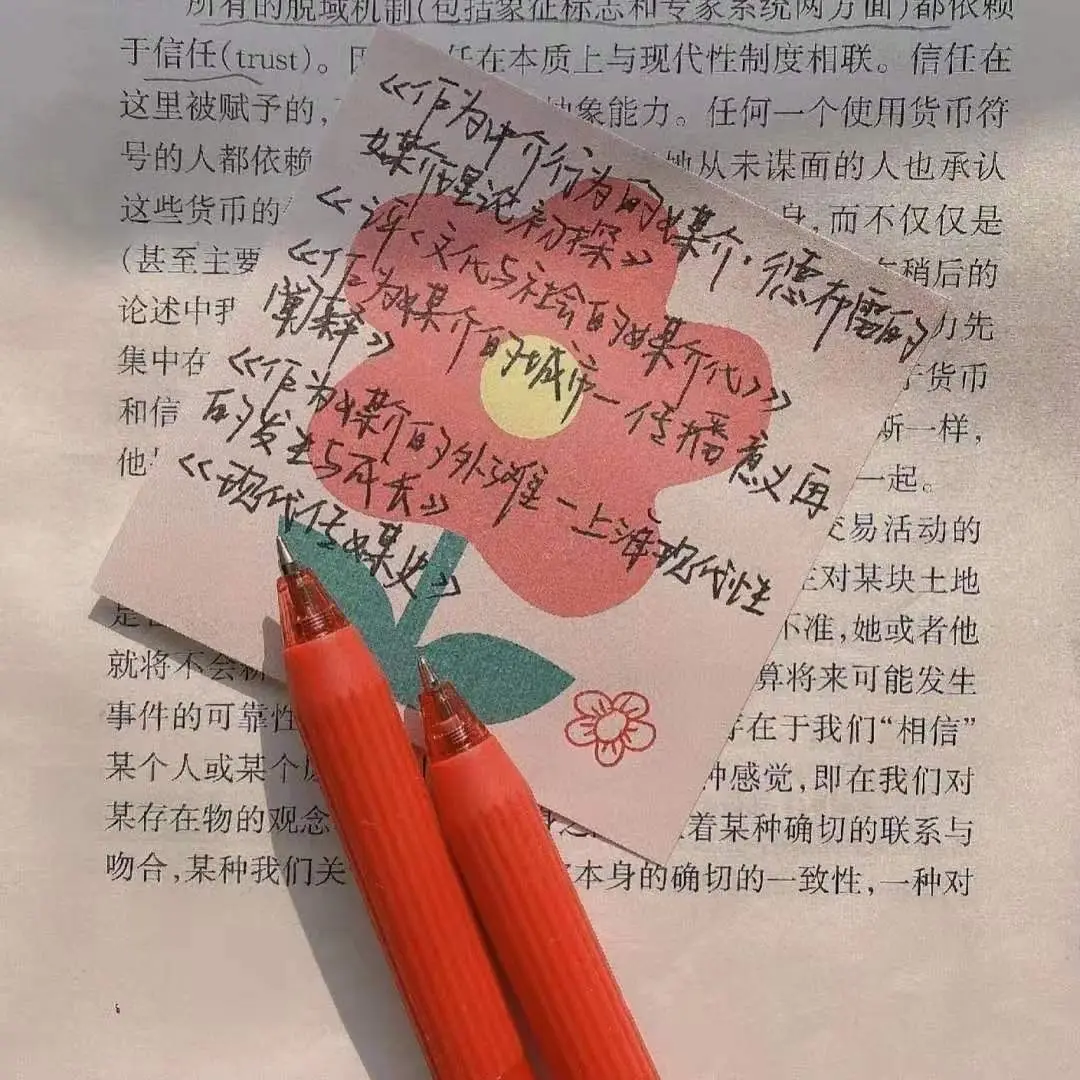 所有的脱域机制(包括象征标志和专家系统两方面)都依赖
于信任(trust)。 任在本质上与现代性制度相联。信任在
这里被赋予的, 抽象能力。任何一个使用货币符
号的人都依赖 她从未谋面的人也承认
这些货币的 身,而不仅仅是
(甚至主要 稍后的
论述中我 力先
集中在 于货币
和信 斯一样,
他 一起。
交易活动的
对某块土地
不准,她或者他
就将不会 算将来可能发生
事件的可靠性 存在于我们“相信”
某个人或某个 种感觉,即在我们对
某存在物的观念 着某种确切的联系与
吻合,某种我们关 本身的确切的一致性,一种对
《作为中介行为的媒介·德布雷的
媒介理论初探》
《评〈文化与社会的媒介化〉》
《作为媒介的城市—传播意义再
阐释》
《作为媒介的外滩—上海现代性
的发生与成长》
《现代传媒史》